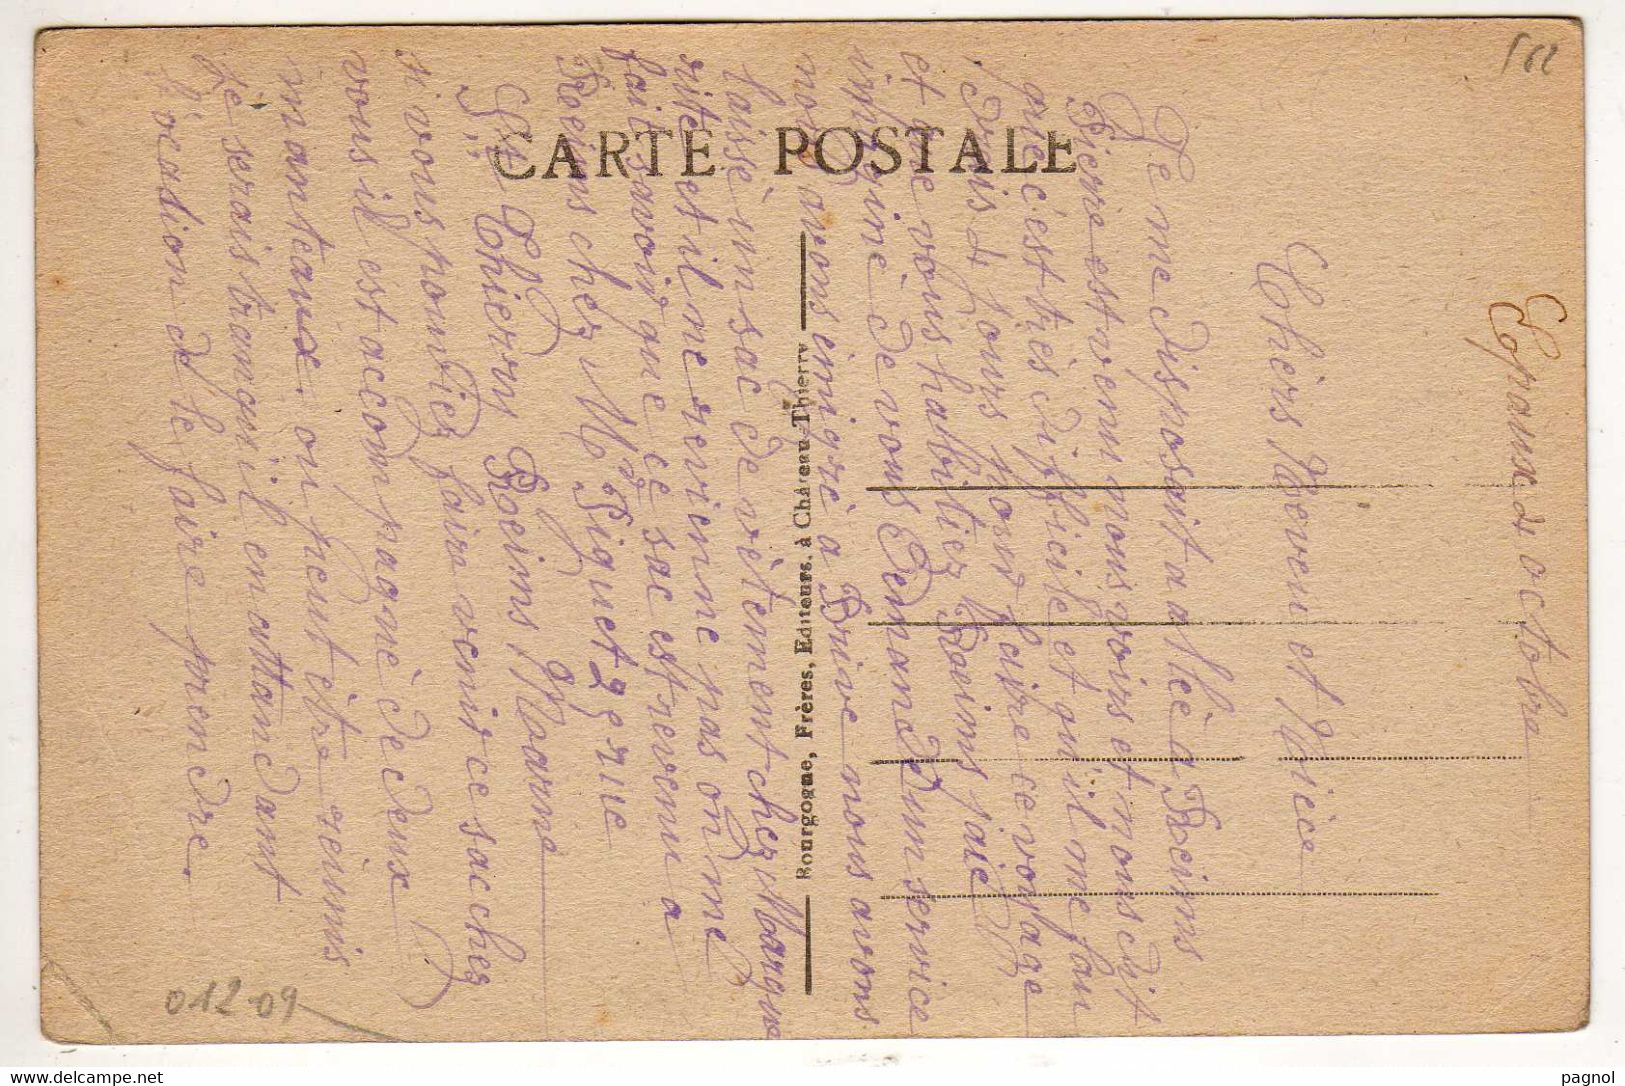 CARTE POSTALE
Bourgogne, Frères, Editeurs, à Château-Thierry
Epoux 4 octobre
Chèrs Neveu et Nièce
Je me disposait a allé a Reims
Pierre est venu nous voirs et nous dit
que c'est très dificile et qu'il me fau
drais 4 jours pour faire ce voyage
et que vous habitiez Reims j'aie
imaginé de vous Demandé un service
nous avons émigré a Brive nous avons
laissé un sac de vêtement chez Margue
rite et il one revienne pas on me
fait savoir que ce sac est revenu a
Reims chez Mr Piquet gérue
Ch Thierry Reims, Marne
si vous pouvier fair venir ce sac chez
vous il est accompagné de deux
manteaux. on peut être réunis
Je serais tranquil en attandant
l'ocation de le faire prendre.
512
01209
pagnol
www.delcampe.net